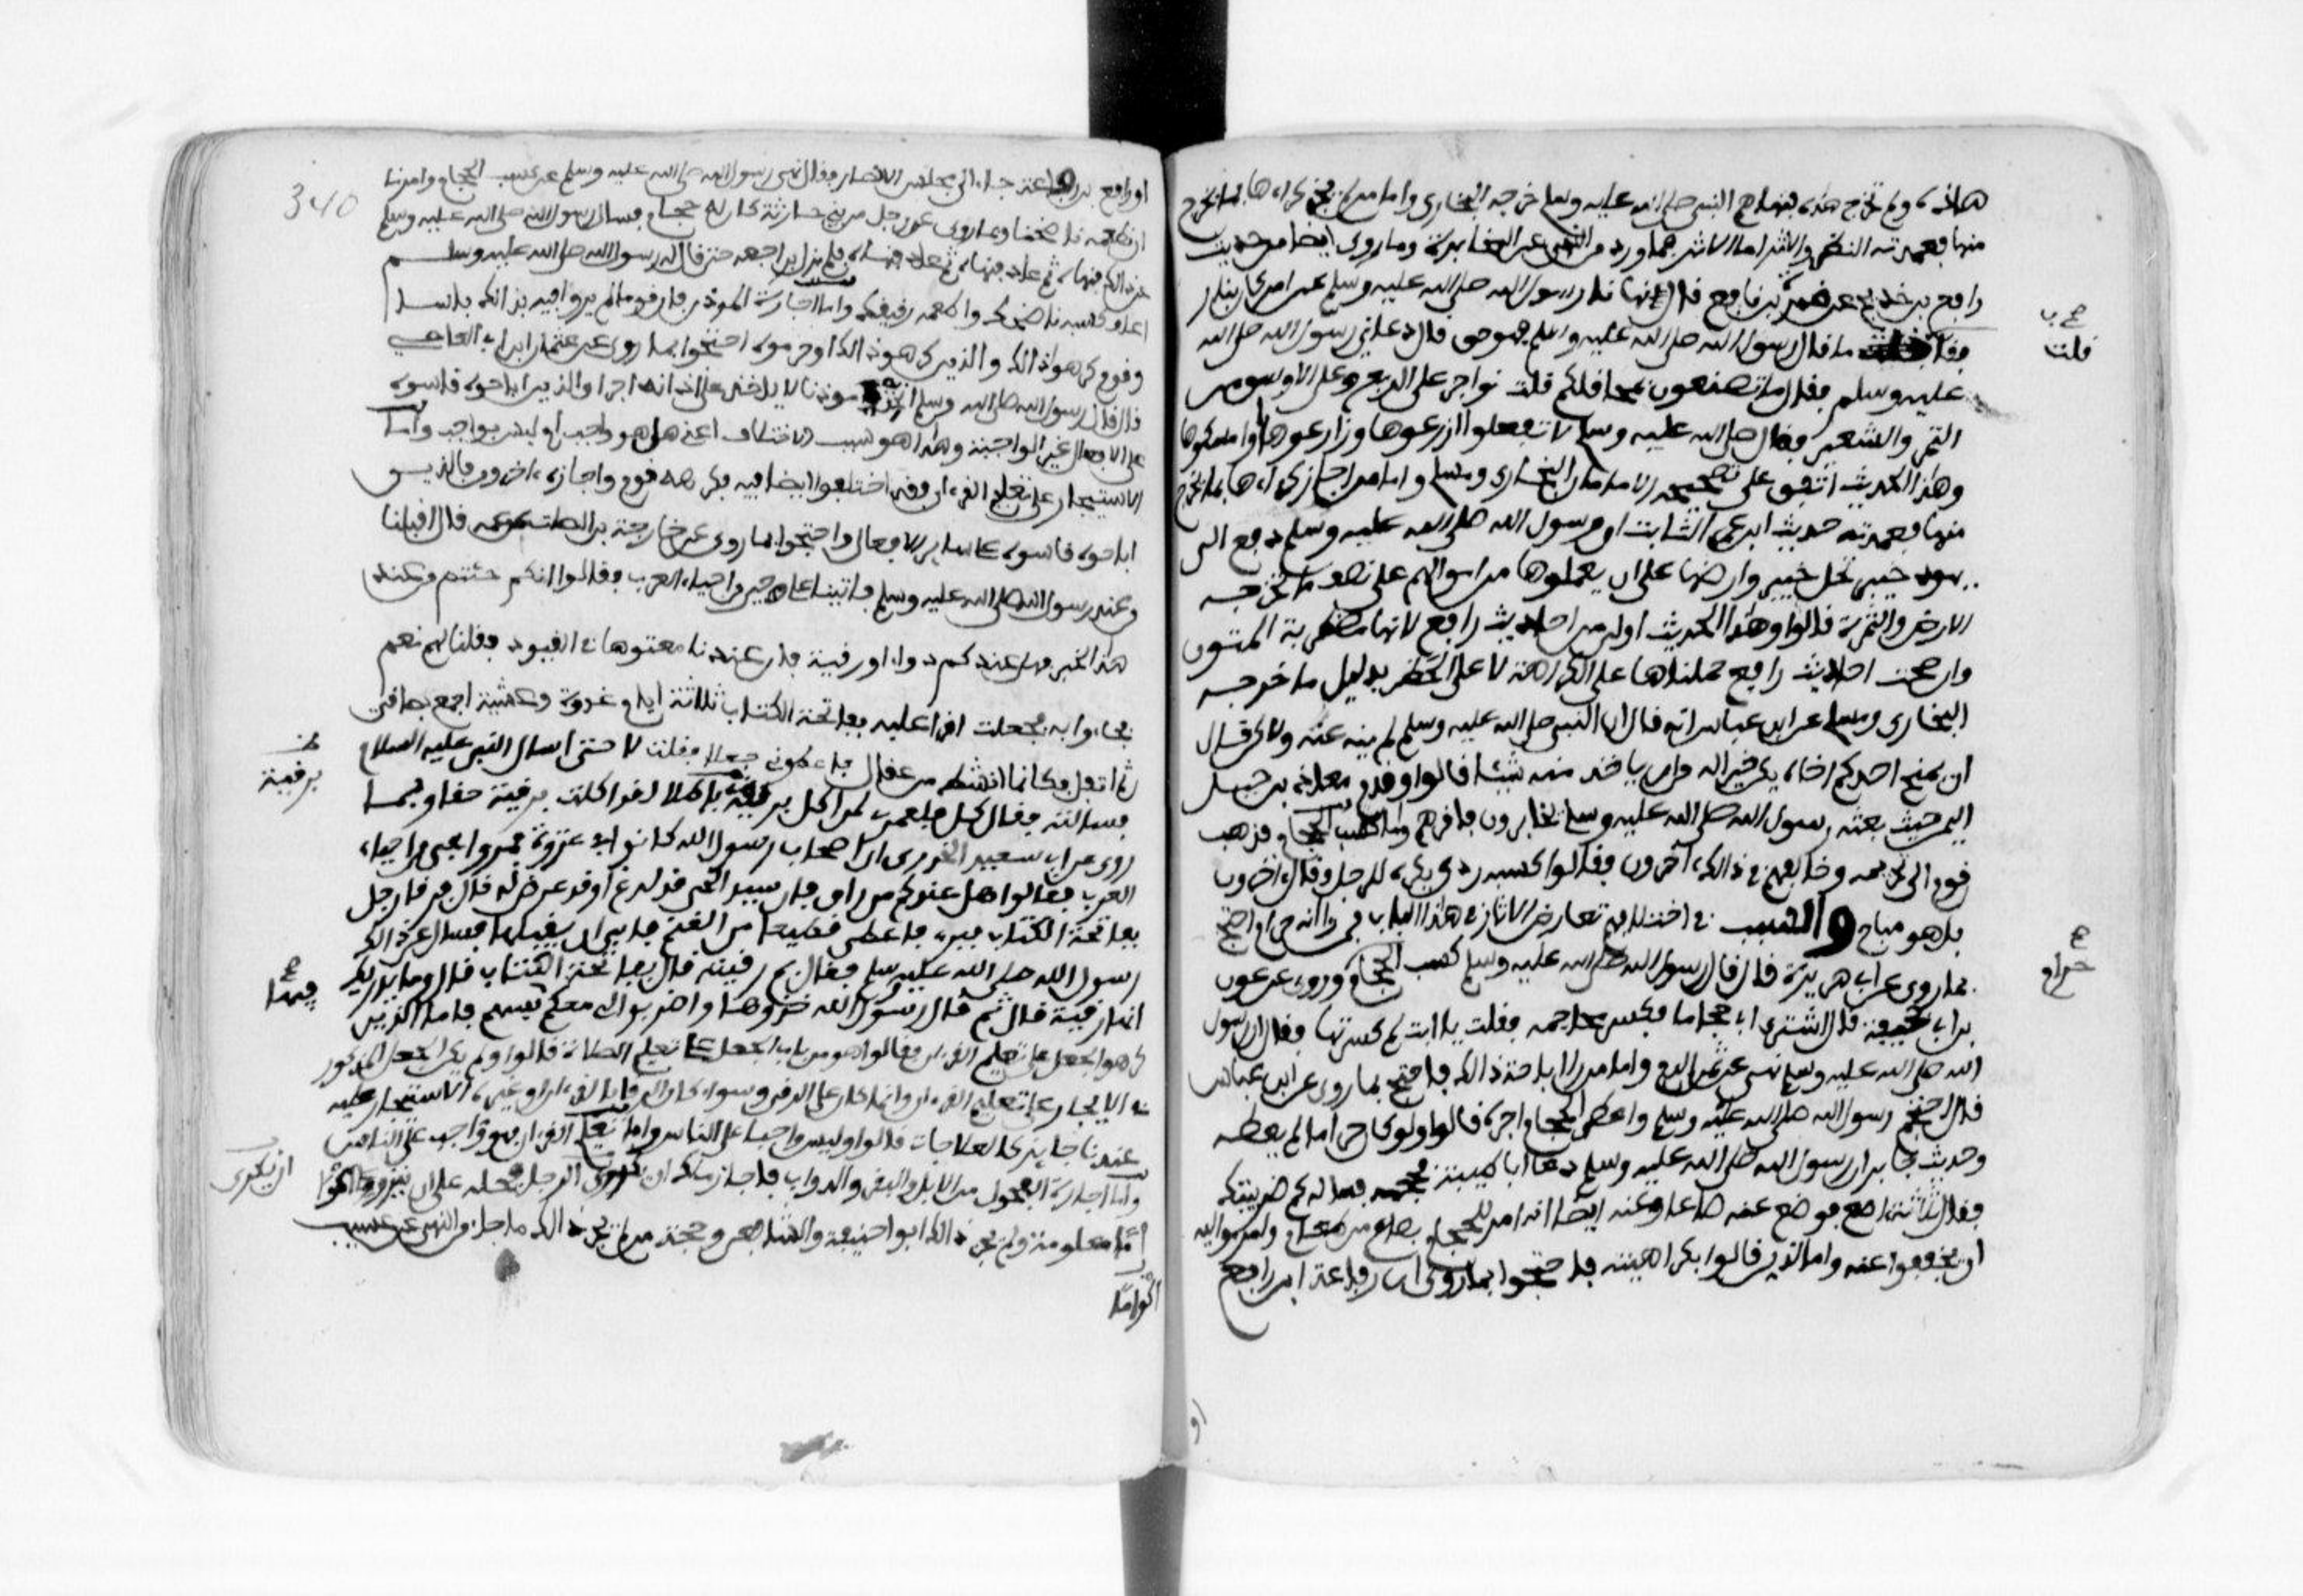 هاذه ولم تخرج هذه فنهاهم النبي صلى الله عليه وسلم خرجه البخاري واما من لم يجز كراءها بما يخرج
منها فعمدته النظر والاثر اما الاثر فما ورد من النهي عن المخابرة وما روي ايضا من حديث
رافع بن خديج عن ظهير بن رافع قال نهانا رسول الله صلى الله عليه وسلم عن امر كان بنا رافقا
فقلت ما قال رسول الله صلى الله عليه وسلم فهو حق قال دعاني رسول الله صلى الله
عليه وسلم فقال ما تصنعون بمحاقلكم قلت نواجر على الربع وعلى الاوسق من
التمر والشعير فقال صلى الله عليه وسلم لا تفعلوا ازرعوها وزارعوها او امسكوها
وهذا الحديث اتفق على تصحيحه الامامان البخاري ومسلم واما من اجاز كراءها بما يخرج
منها فعمدته حديث ابن عمر الثابت ان رسول الله صلى الله عليه وسلم دفع الى
يهود خيبر نخل خيبر وارضها على ان يعملوها من اموالهم على نصف ما تخرجه
الارض والثمرة قالوا وهذا الحديث اولى من احاديث رافع لانها مضطربة المتون
وان صحت احاديث رافع حملناها على الكراهة لا على الحظر بدليل ما خرجه
البخاري ومسلم عن ابن عباس انه قال ان النبي صلى الله عليه وسلم لم ينه عنه ولاكن قال
ان يمنح احدكم اخاه يكن خيرا له من ان ياخذ منه شيئا قالوا وقدم معاذ بن جبل
اليمن حيث بعثه رسول الله صلى الله عليه وسلم يخابرون فاقرهم واما كسب الحجام فذهب
قوم الى تحريمه وخالفهم في ذالك آخرون فقالوا كسبه ردي يكره للرجل وقال اخرون
بل هو مباح والسبب في اختلافهم تعارض الاثار في هذا الباب فمن راى انه حرام احتج
بما روي عن ابي هريرة قال قال رسول الله صلى الله عليه وسلم كسب الحجام وروي عن عون
بن ابي جحيفة قال اشترى ابي حجاما فكسر محاجمه فقلت يا ابت لم كسرتها فقال ان رسول
الله صلى الله عليه وسلم نهى عن ثمن الدم واما من راى اباحة ذالك فاحتج بما روي عن ابن عباس
قال احتجم رسول الله صلى الله عليه وسلم واعطى الحجام اجره قالوا ولو كان حراما لم يعطه
وحديث جابر ان رسول الله صلى الله عليه وسلم دعا ابا طيبة فحجمه فساله كم ضريبتك
فقال ثلاثة اصع فوضع عنه صاعا وعنه ايضا انه امر للحجام بصاع من طعام وامر مواليه
ان يخففوا عنه واما الذين قالوا بكراهيته فاحتجوا بما روي ان رفاعة ابن رافع
ح ب
قلت
ح
حرام
او
340
او رافع بن رفاعة جاء الى مجلس الانصار فقال نهى رسول الله صلى الله عليه وسلم عن كسب الحجام وامرنا
ان نطعمه ناضحنا وبما روي عن رجل من بني حارثة كان له حجام فسال رسول الله صلى الله عليه وسلم
عن ذالك فنهاه ثم عاد فنهاه ثم عاد فنهاه فلم يزل يراجعه حتى قال له رسول الله صلى الله عليه وسلم
اعلف كسبه ناضحك واطعمه رقيقك واما اجارة الموذن فان قوما لم يروا فيه بذالك باسا
وقوم كرهوا ذالك والذين كرهوا ذالك وحرموه احتجوا بما روي عن عثمان ابن ابي العاصي
قال قال رسول الله صلى الله وسلم اتخذ موذنا لا ياخذ على اذانه اجرا والذين اباحوه قاسوه
على الافعال غير الواجبة وهذا هو سبب الاختلاف اعني هل هو واجب ام ليس بواجب واما
الاستيجار على تعليم القرءان فقد اختلفوا ايضا فيه فكرهه قوم واجازه ءاخرون فالذين
اباحوه قاسوه على ساير الافعال واحتجوا بما روي عن خارجة بن الصلت عن عمه قال اقبلنا
من عند رسول الله صلى الله عليه وسلم فاتينا على حي من احياء العرب فقالوا انكم جئتم من عند
هذا الخبر فهل عندكم دواء او رقية فان عندنا معتوها في القيود فقلنا لهم نعم
فجاءوا به فجعلت اقرا عليه بفاتحة الكتاب ثلاثة ايام غدوة وعشية اجمع بصاقي
ثم اتفل فكانما انشط من عقال فاعطوني جعلا فقلت لا حتى اسال النبي عليه السلام
فسالته فقال كل فلعمري لمن اكل برقية باطل لقد اكلت برقية حق وبما
روي عن ابي سعيد الخدري ان اصحاب رسول الله كانوا في غزوة فمروا بحي من احياء
العرب فقالوا هل عندكم من راق فان سيد الحي قد لدغ او قد عرض له قال فرقا رجل
بفاتحة الكتاب فبرء فاعطي قطيعا من الغنم فابى ان يقبلها فسال عن ذالك
رسول الله صلى الله عليه وسلم فقال بم رقيته قال بفاتحة الكتاب قال وما يدريك
انها رقية قال ثم قال رسول الله خذوها واضربوا لي معكم بسهم فاما الذين
كرهوا الجعل على تعليم القرءان فقالوا هو من باب الجعل على تعليم الصلاة قالوا ولم يكن الجعل المذكور
في الايجار على تعليم القرءان وانما كان على الرقى وسواء كان الرقى بالقرءان او غيره الاستيجار عليه
عندنا جايز كالعلاجات قالوا وليس واجبا على الناس واما تعليم القرءان فهو واجب على الناس
واما اجارة الفحول من الابل والبقر والدواب فاجاز مالك ان يكري الرجل فحله على ان ينزو اكواما
معلومة ولم يجز ذالك ابو حنيفة والشافعي وحجة من لم يجز ذالك ما جاء من النهي عن عسيب
اكواما
ط
برقية
ح
فيها
ان يكري